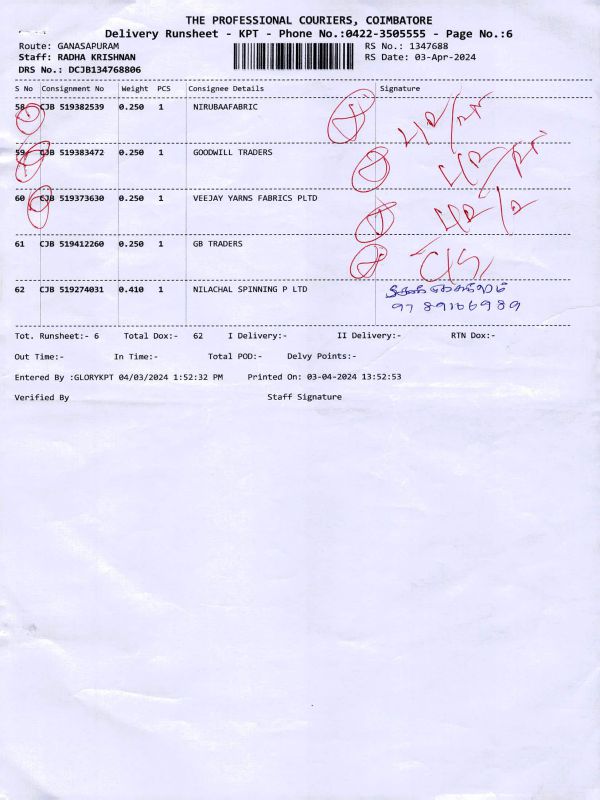 THE PROFESSIONAL COURIERS, COIMBATORE
Delivery Runsheet - KPT - Phone No.:0422-3505555 - Page No.:6
Route: GANASAPURAM RS No.: 1347688
Staff: RADHA KRISHNAN RS Date: 03-Apr-2024
DRS No.: DCJB134768806
S No Consignment No Weight PCS Consignee Details Signature
58 CJB 519382539 0.250 1 NIRUBAAFABRIC
59 CJB 519383472 0.250 1 GOODWILL TRADERS
60 CJB 519373630 0.250 1 VEEJAY YARNS FABRICS PLTD
61 CJB 519412260 0.250 1 GB TRADERS
62 CJB 519274031 0.410 1 NILACHAL SPINNING P LTD
9789166989
Tot. Runsheet:- 6 Total Dox:- 62 I Delivery:- II Delivery:- RTN Dox:-
Out Time:- In Time:- Total POD:- Delvy Points:-
Entered By :GLORYKPT 04/03/2024 1:52:32 PM Printed On: 03-04-2024 13:52:53
Verified By Staff Signature